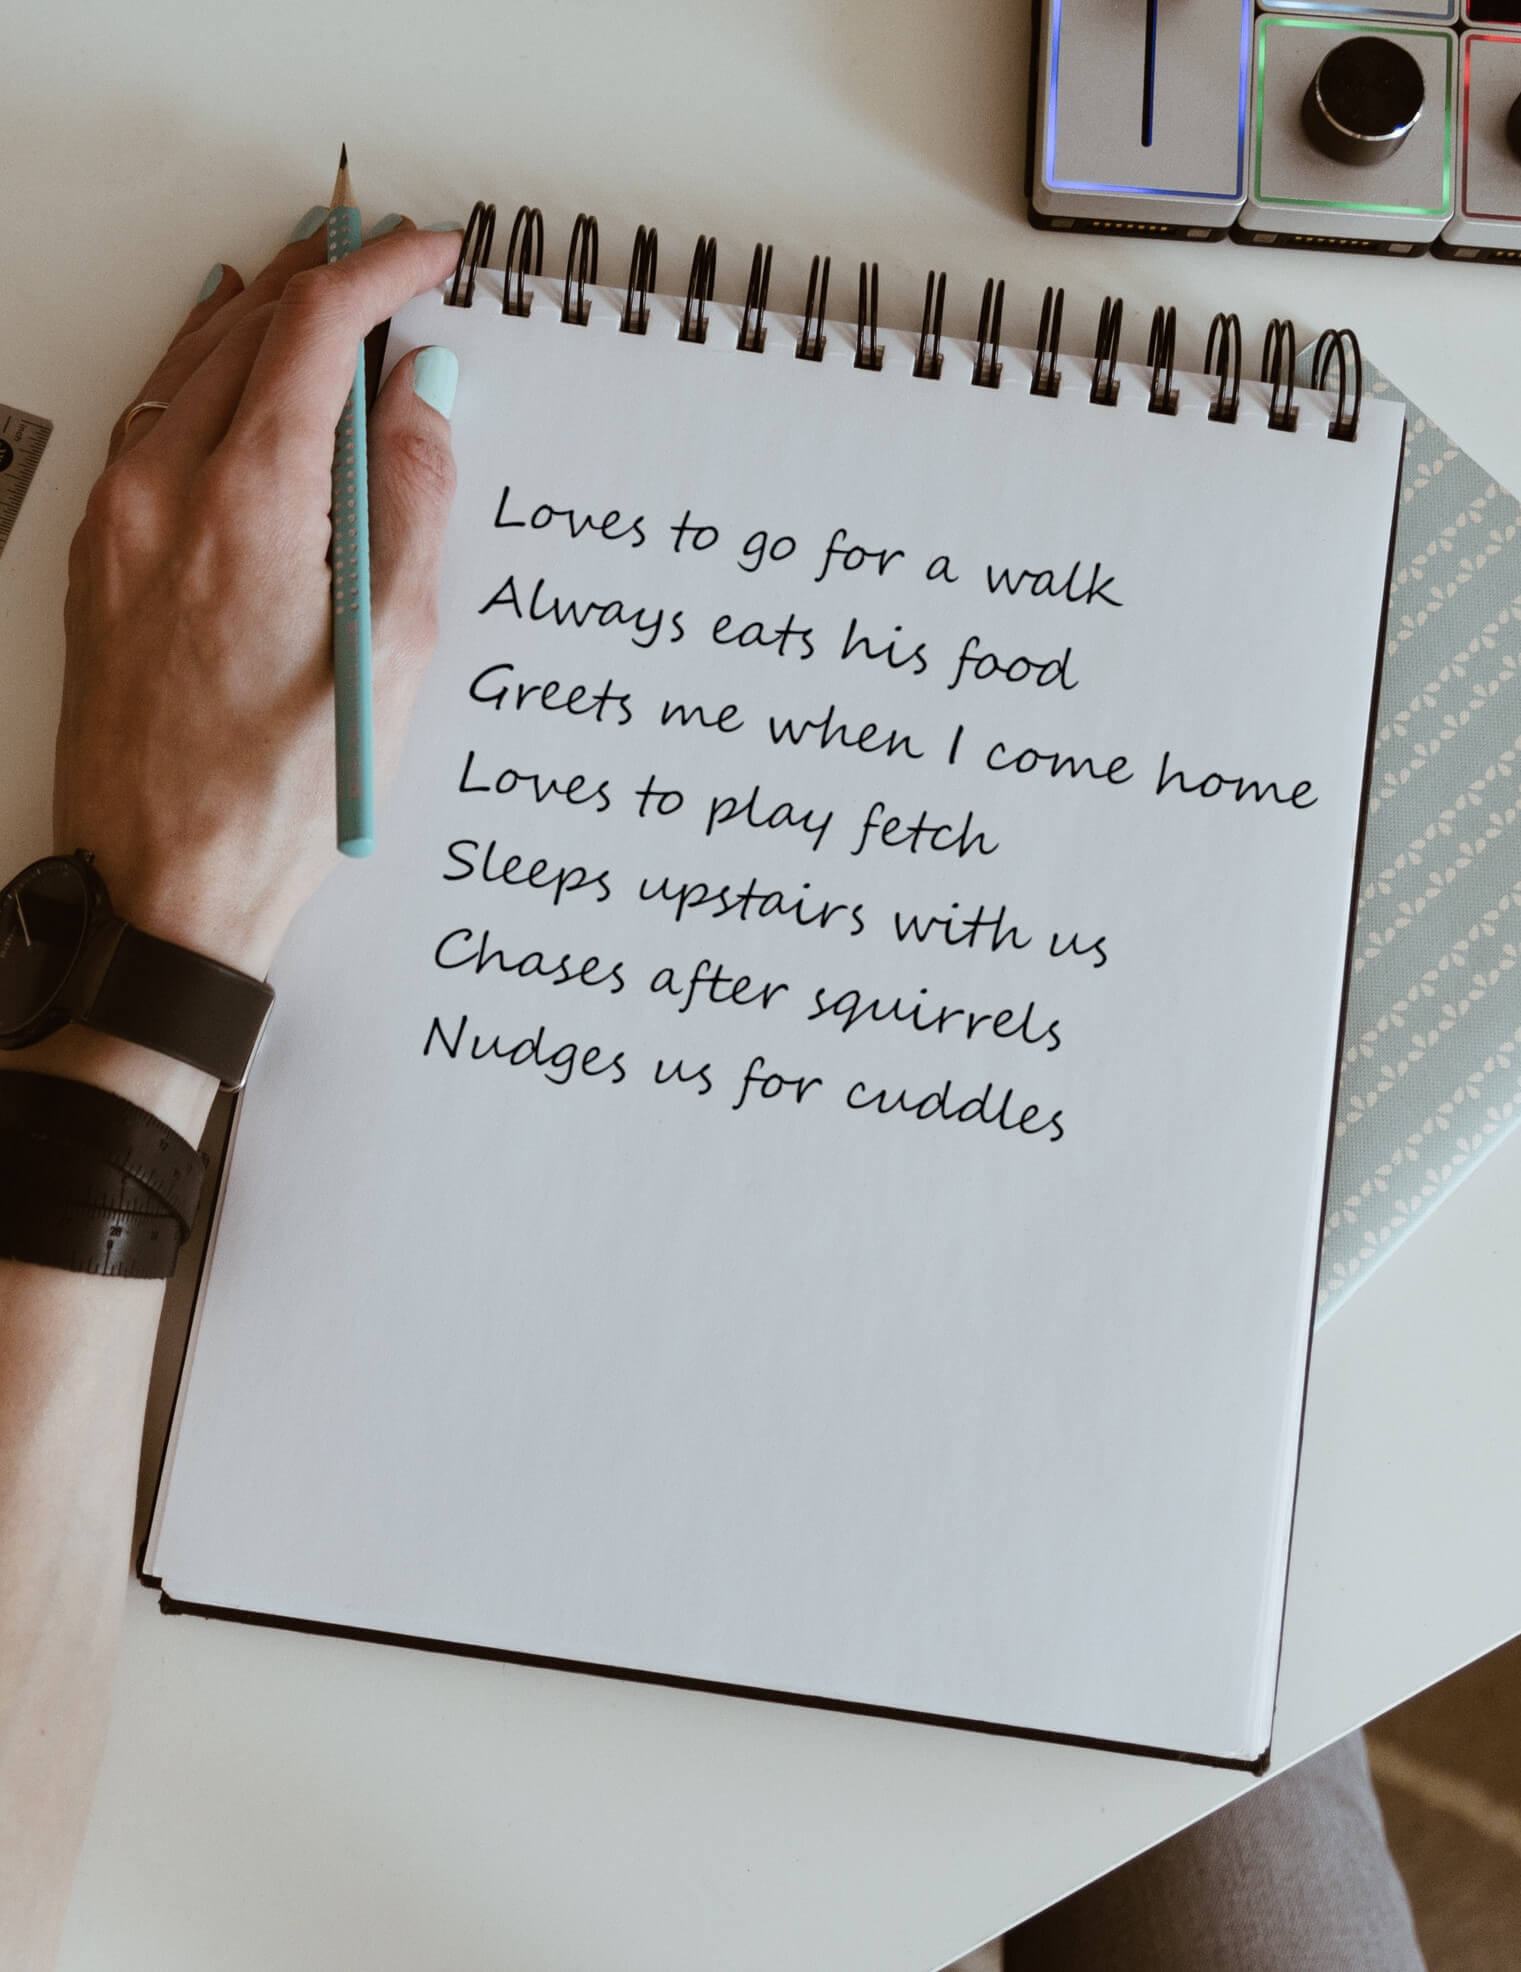 Loves to go for a walk
Always eats his food
Greets me when I come home
Loves to play fetch
Sleeps upstairs with us
Chases after squirrels
Nudges us for cuddles
inch
20